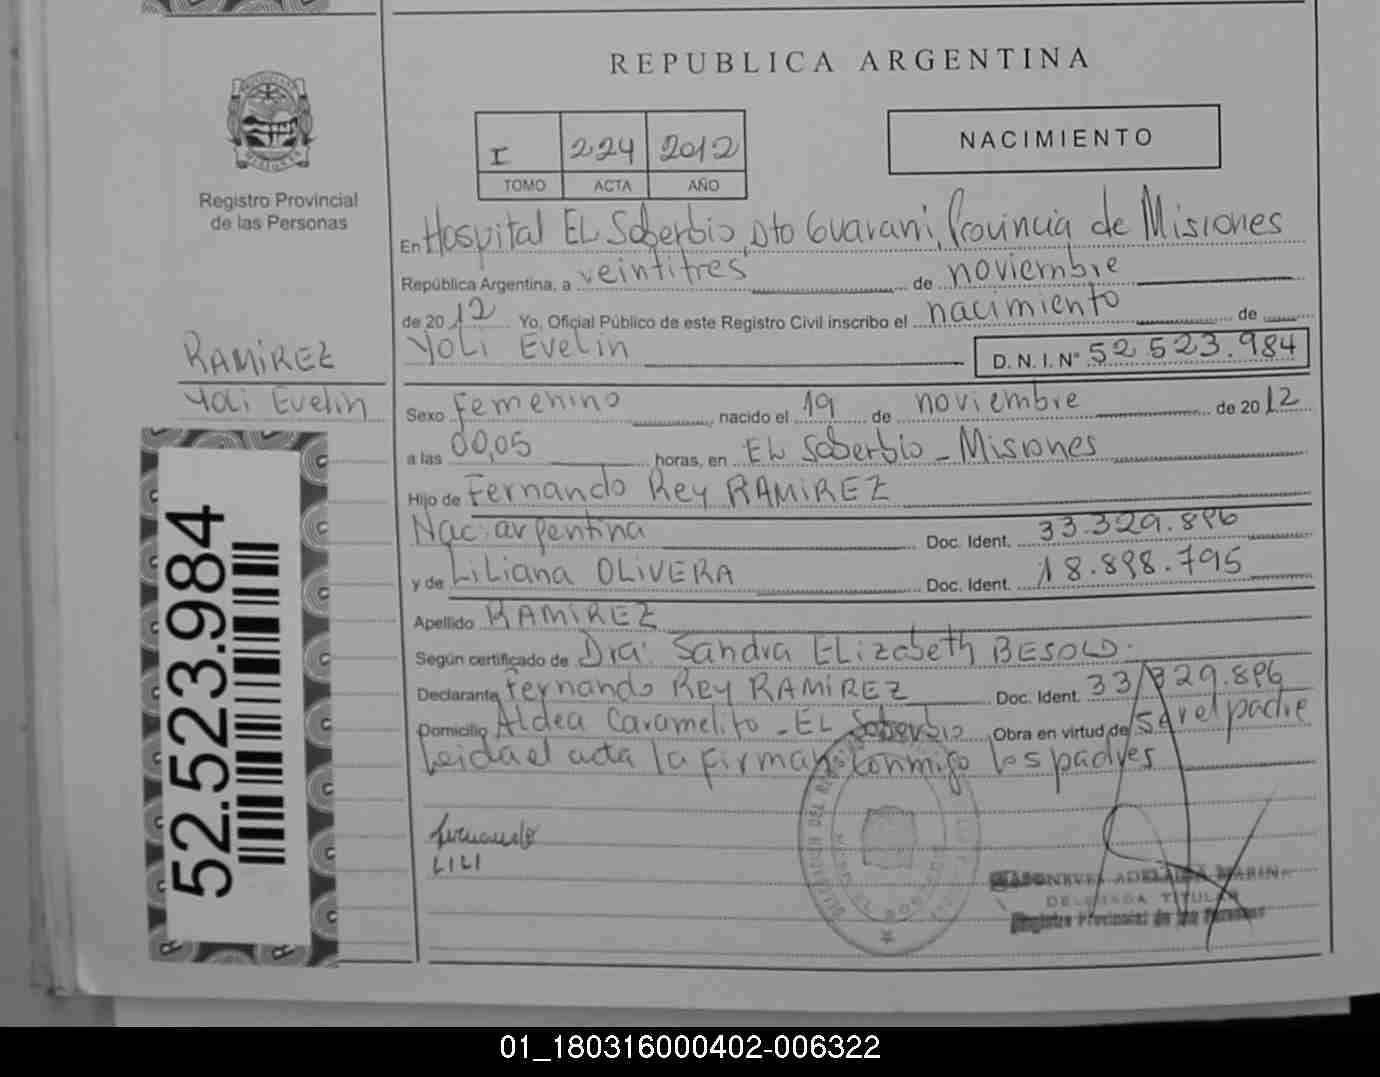 REPUBLICA ARGENTINA
I 224 2012
TOMO ACTA AÑO
NACIMIENTO
Registro Provincial
de las Personas
RAMIREZ
Yoli Evelin
52.523.984
En Hospital EL Soberbio, Dto Guarani, Provincia de Misiones
República Argentina, a veintitres de noviembre
de 2012 Yo, Oficial Público de este Registro Civil inscribo el nacimiento de
Yoli Evelin D. N. I. N° 52 523.984
Sexo femenino, nacido el 19 de noviembre de 2012
a las 00,05 horas, en EL Soberbio - Misiones
Hijo de Fernando Rey RAMIREZ
Nac: argentina Doc. Ident. 33.329.896
y de Liliana OLIVERA Doc. Ident. 18.898.795
Apellido RAMIREZ
Según certificado de Dra: Sandra ELizabeth BESOLD.
Declarante Fernando Rey RAMIREZ Doc. Ident. 33 329.896
Domicilio Aldea Caramelito - EL Soberbio Obra en virtud de ser el padre
Leida el acta la firman conmigo los padres
Fernando
LILI
ADELAIDA MARIN
DELEGADA TITULAR
Registro Provincial de las Personas
01_180316000402-006322